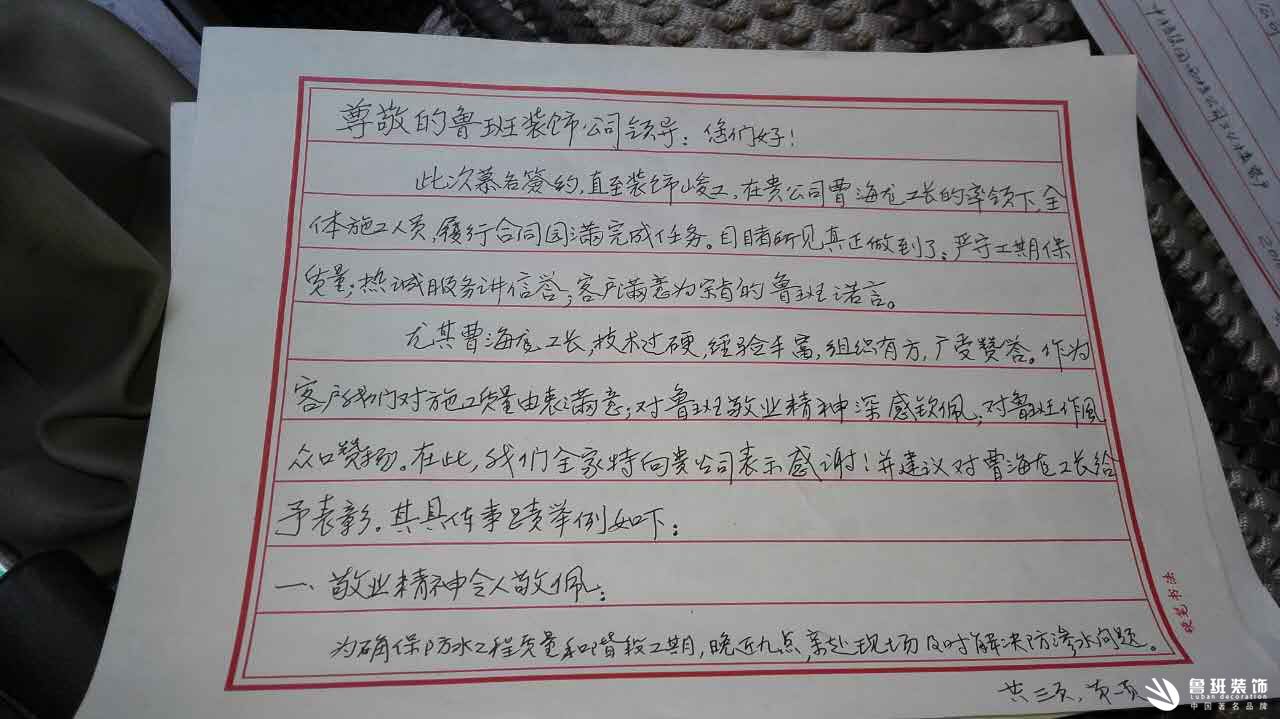 尊敬的鲁班装饰公司领导：您们好！
此次慕名签约，直至装饰峻工，在贵公司曹海龙工长的率领下，全
体施工人员，履行合同圆满完成任务。目睹所见真正做到了：严守工期保
质量；热诚服务讲信誉；客户满意为宗旨的鲁班诺言。
尤其曹海龙工长，技术过硬，经验丰富，组织有方，广受赞答。作为
客户我们对施工质量由衷满意；对鲁班敬业精神深感钦佩；对鲁班作风
众口赞扬。在此，我们全家特向贵公司表示感谢！并建议对曹海龙工长给
予表彰。其具体事迹举例如下：
一、敬业精神令人敬佩：
为确保防水工程质量和阶段工期，晚近九点，亲赴现场及时解决防渗水问题。
共三页，第一页
晓笔书法
鲁班装饰
Luban decoration
中国著名品牌